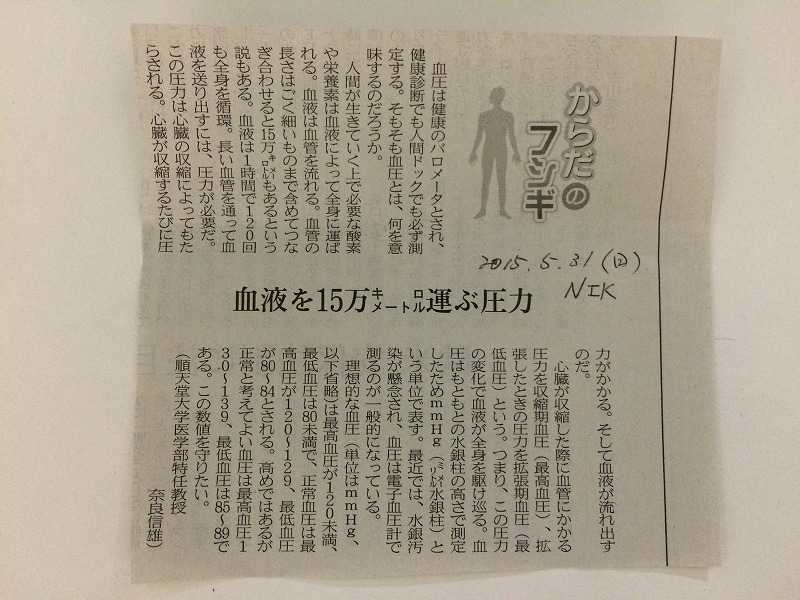 からだの
フシギ
2015.5.31(日)
NIK
血液を15万キロメートル運ぶ圧力
血圧は健康のバロメータとされ、
健康診断でも人間ドックでも必ず測
定する。そもそも血圧とは、何を意
味するのだろうか。
人間が生きていく上で必要な酸素
や栄養素は血液によって全身に運ば
れる。血液は血管を流れる。血管の
長さはごく細いものまで含めてつな
ぎ合わせると15万キロメートルもあるという
説もある。血液は1時間で120回
も全身を循環。長い血管を通って血
液を送り出すには、圧力が必要だ。
この圧力は心臓の収縮によってもた
らされる。心臓が収縮するたびに圧
力がかかる。そして血液が流れ出す
のだ。
心臓が収縮した際に血管にかかる
圧力を収縮期血圧(最高血圧)、拡
張したときの圧力を拡張期血圧(最
低血圧)という。つまり、この圧力
の変化で血液が全身を駆け巡る。血
圧はもともとの水銀柱の高さで測定
したためmmHg(ミリメートル水銀柱)と
いう単位で表す。最近では、水銀汚
染が懸念され、血圧は電子血圧計で
測るのが一般的になっている。
理想的な血圧(単位はmmHg、
以下省略)は最高血圧が120未満、
最低血圧は80未満で、正常血圧は最
高血圧が120~129、最低血圧
が80~84とされる。高めではあるが
正常と考えてよい血圧は最高血圧1
30~139、最低血圧は85~89で
ある。この数値を守りたい。
(順天堂大学医学部特任教授
奈良信雄)